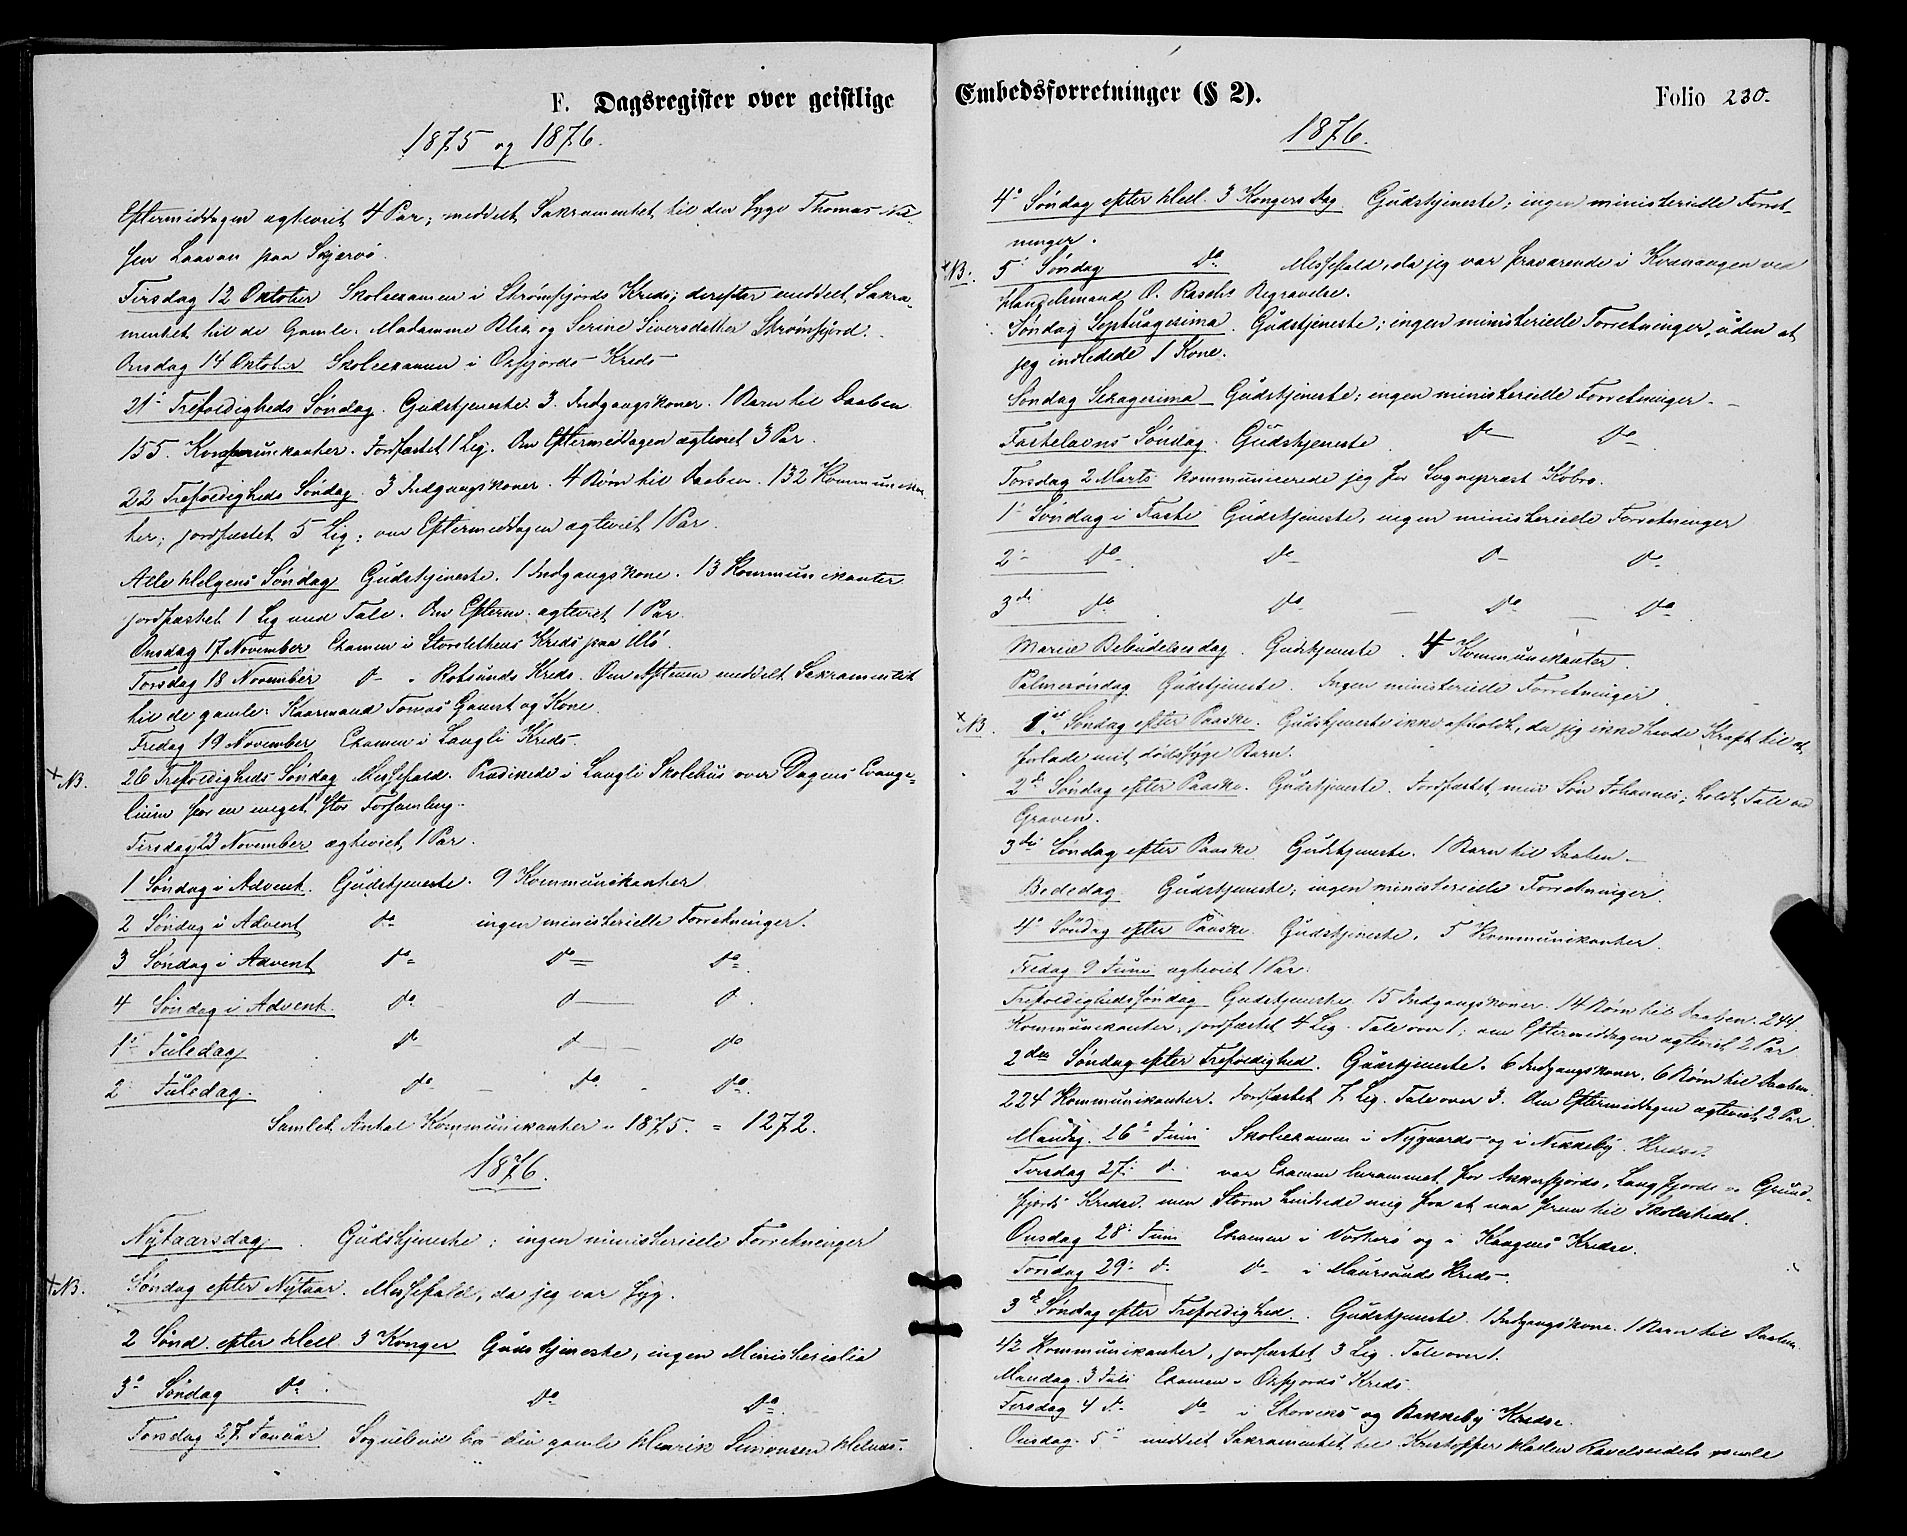 F. Dagsregister over geistlige
1875 og 1876.
Eftermiddagen egteviet 4 Par; meddelt Sakramentet til den syge Thomas Nil
sen Laavan paa Skjervø.
Tirsdag 12 Oktober Skoleexamen i Strømfjords Kreds; derefter meddelt Sakra-
mentet til de Gamle: Madamme Blix og Serine Siversdatter Strømfjord.
Onsdag 14 Oktober Skoleexamen i Oxfjords Kreds
21. Trefoldigheds Søndag. Gudstjeneste. 3 Indgangskoner. 1 Barn til Daaben
155. Kommunikanter. Jordfæstet 1 Lig. Om Eftermiddagen egteviet 3 Par.
22 Trefoldigheds Søndag. 3 Indgangskoner. 4 Børn til Daaben. 132 Kommunikan-
ter; jordfæstet 5 Lig; om Eftermiddagen egteviet 1 Par.
Alle Helgens Søndag Gudstjeneste. 1 Indgangskone. 13 Kommunikanter
jordfæstet 1 Lig med Tale. Om Efterm. egteviet 1 Par.
Onsdag 17 November Examen i Storslettens Kreds paa Ulø.
Torsdag 18 November do " Rotsunds Kreds. Om Aftenen meddelt Sakramentet
til de gamle: Kaarmand Tomas Gamst og Kone.
Fredag 19 November Examen i Langli Kreds.
+ NB. 26 Trefoldigheds Søndag Messefald. Prædikede i Langli Skolehus over Dagens Evange-
lium for en meget stor Forsamling.
Tirsdag 23 November egteviet 1 Par.
1 Søndag i Advent. Gudstjeneste. 9 Kommunikanter
2 Søndag i Advent do ingen ministerielle Forretninger.
3 Søndag i Advent do do do
4 Søndag i Advent. do do do
1ste Juledag do do do
2 Juledag. do do do
Samlet Antal Kommunikanter i 1875. = 1272.
1876.
Nytaarsdag. Gudstjeneste; ingen ministerielle Forretninger
+ NB. Søndag efter Nytaar. Messefald, da jeg var syg.
2 Sønd. efter Hell. 3 Konger Gudstjeneste, ingen Ministerialia
3. Søndag do. do do
Torsdag 27. Januar Sognebud den gamle Henrik Simonsen
Embedsforretninger (§ 2).
Folio 230.
1876.
4. Søndag efter Hell. 3 Kongers Dag. Gudstjeneste; ingen ministerielle Forret-
ninger.
+ NB. 5. Søndag do Messefald, da jeg var fraværende i Kvænangen ved
Handelsmand O. Raschs Begravelse.
Søndag Septuagesima. Gudstjeneste; ingen ministerielle Forretninger, uden at
jeg indledede 1 Kone.
Søndag Sexagesima Gudstjeneste; ingen ministerielle Forretninger.
Fastelavns Søndag. Gudstjeneste do do
Torsdag 2 Marts kommunicerede jeg for Sognepræst Kobro.
1 Søndag i Faste Gudstjeneste, ingen ministerielle Forretninger
2 do. do do do
3die do. do do do
Mariæ Bebudelsesdag. Gudstjeneste. 4 Kommunikanter.
Palmesøndag Gudstjeneste. Ingen ministerielle Forretninger.
+ NB. 1ste Søndag efter Paaske. Gudstjeneste ikke afholdt, da jeg ikke havde Kraft til at
forlade mit dødssyge Barn.
2den Søndag efter Paaske. Gudstjeneste. Jordfæstet min Søn Johannes; holdt Tale ved
Graven.
3die Søndag efter Paaske Gudstjeneste. 1 Barn til Daaben.
Bededag Gudstjeneste; ingen ministerielle Forretninger.
4. Søndag efter Paaske. Gudstjeneste. 5 Kommunikanter.
Fredag 9 Juni egteviet 1 Par.
Trefoldighedssøndag Gudstjeneste. 15 Indgangskoner. 14 Børn til Daaben. 244
Kommunikanter, jordfæstet 4 Lig. Tale over 1; om Eftermiddagen egteviet 2 Par
2den Søndag efter Trefoldighed. Gudstjeneste. 6 Indgangskoner. 6 Børn til Daaben.
224 Kommunikanter. Jordfæstet 7 Lig. Tale over 3. Om Eftermiddagen egteviet 2 Par.
Mandag. 26. Juni Skoleexamen i Nygaards og i Nikkeby Kredse.
Tirsdag 27. do. var Examen berammet for Akkarfjords, Langfjords og Grund-
fjords Kredse, men Storm hindrede mig fra at naa frem til Skolestedet.
Onsdag 28. Juni Examen i Vorterø og i Kaagens Kredse.
Torsdag 29. do. do i Maursunds Kreds.
3die Søndag efter Trefoldighed. Gudstjeneste. 1 Indgangskone. 1 Barn til Daaben.
42 Kommunikanter, jordfæstet 3 Lig. Tale over 1.
Mandag. 3 Juli Examen i Oxfjords Kreds.
Tirsdag 4 do do i Storviks og Bakkeby Kredse.
Onsdag. 5. meddelt Sakramentet til Kristoffer Ravelseidets gamle